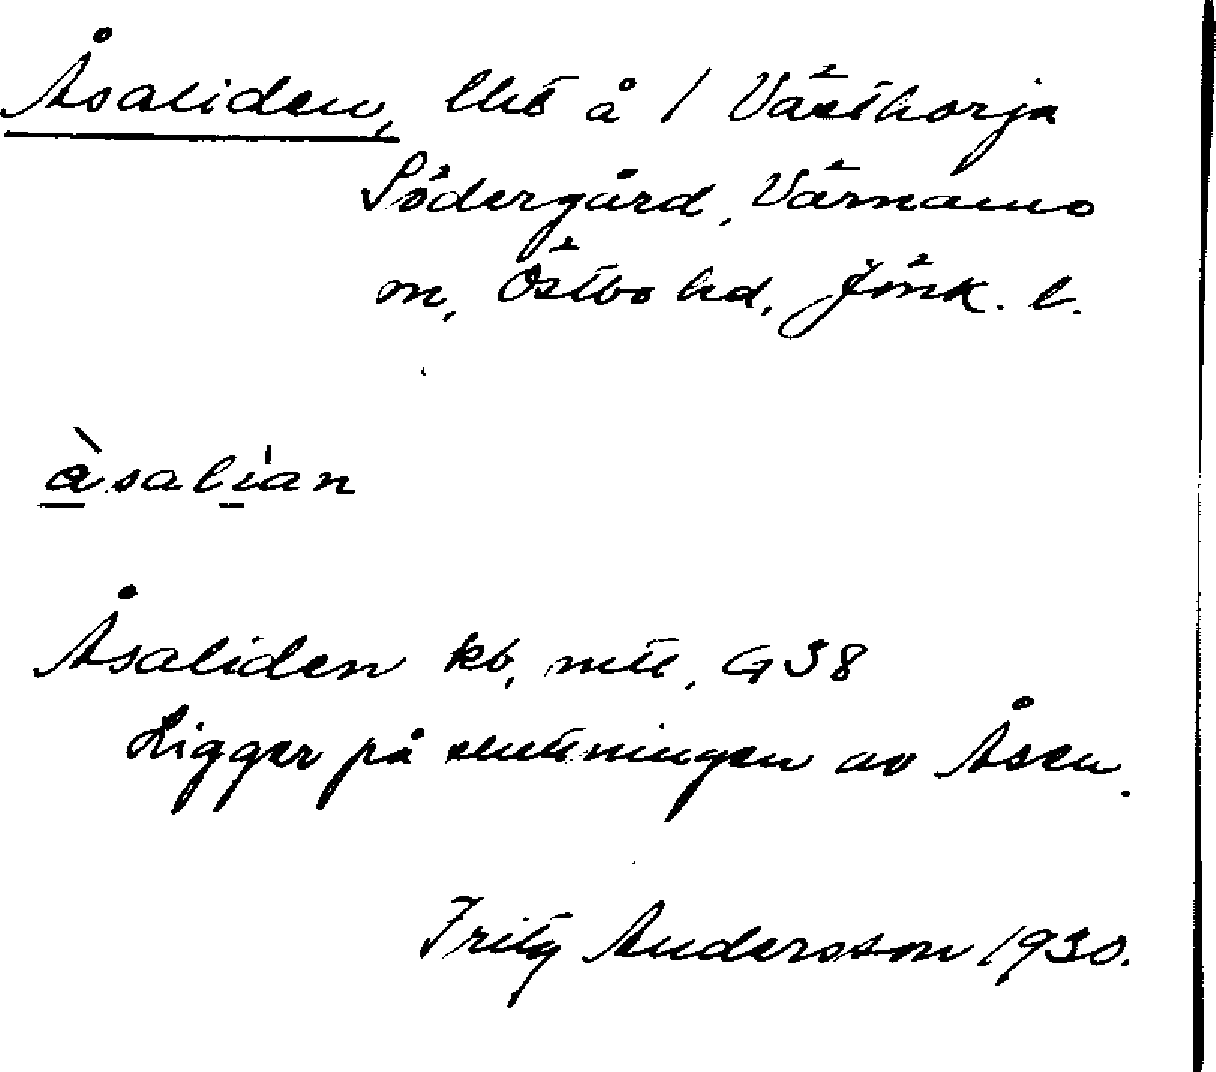 Åsaliden, lht å 1 Västhorja
Södergård, Värnamo
sn, Östbo hd, Jönk. l.
åsalian
Åsaliden kb, mtl, G38
Ligger på sluttningen av Åsen.
Fritz Andersson 1930.